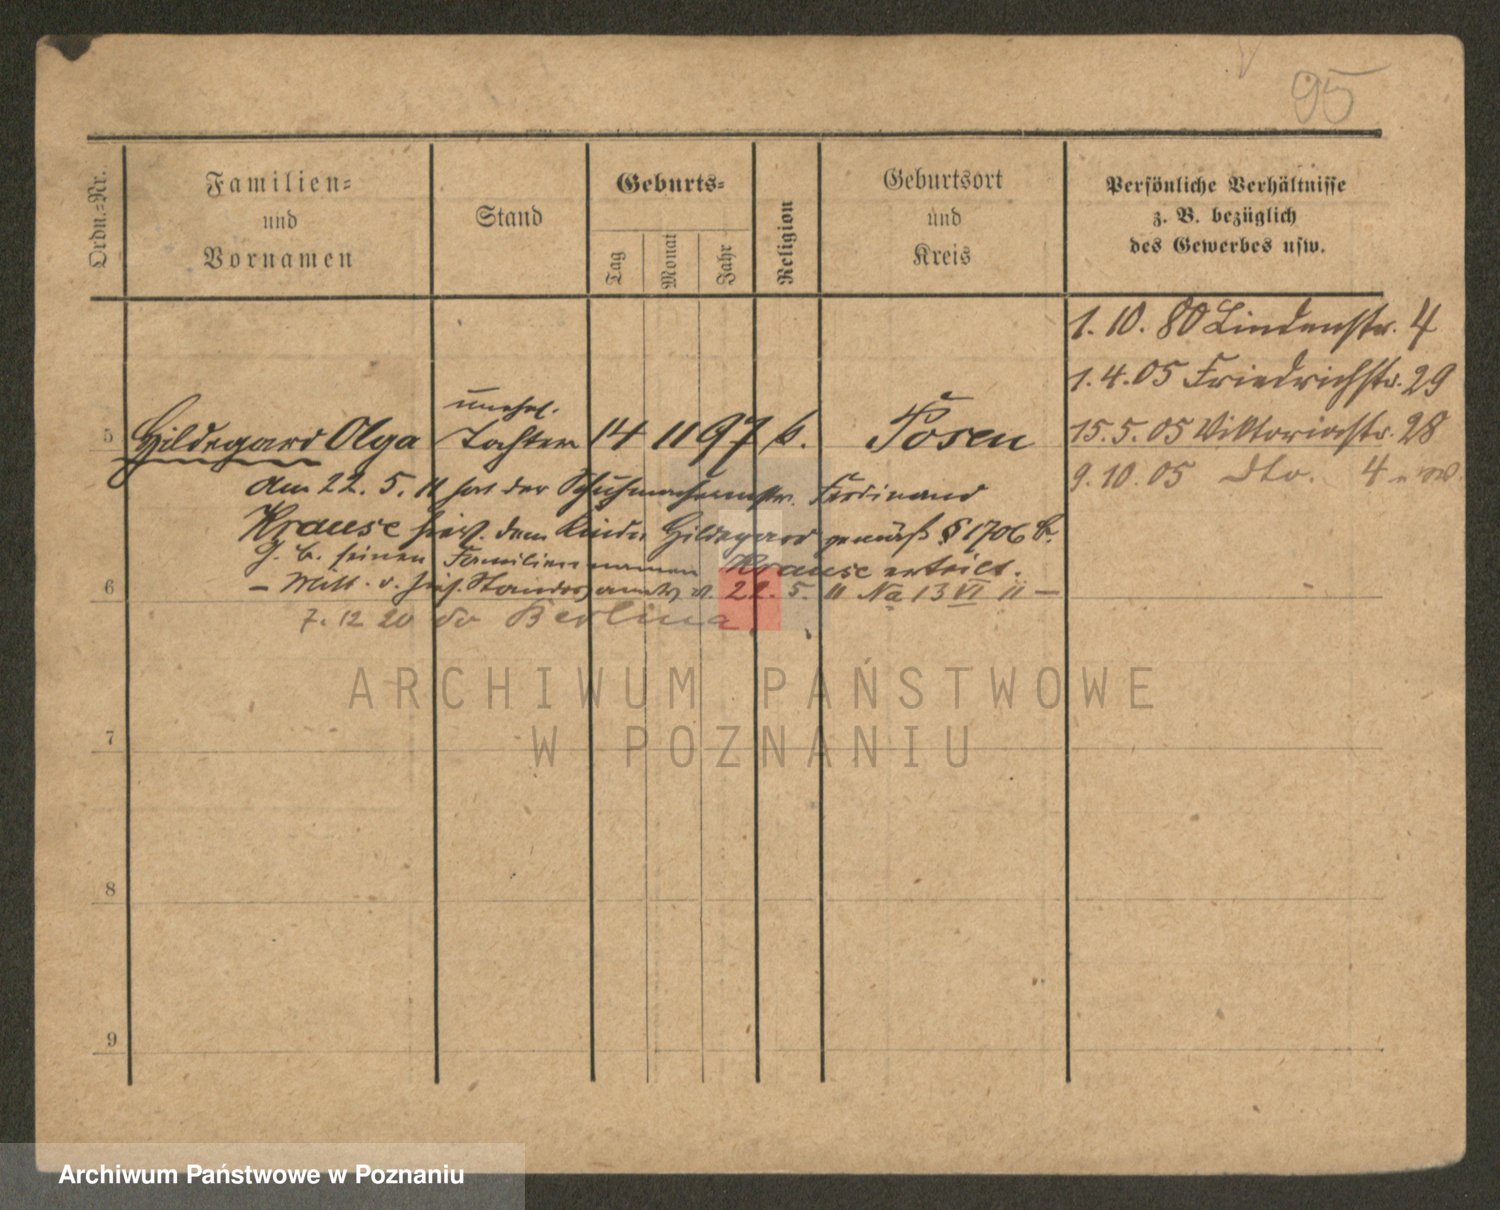 95
Ordn.-Nr.
Familien-
und
Vornamen
Stand
Geburts-
Tag
Monat
Jahr
Religion
Geburtsort
und
Kreis
Persönliche Verhältnisse
z. B. bezüglich
des Gewerbes usw.
1. 10. 80 Lindenstr. 4
1. 4. 05 Friedrichstr. 29
unehel.
5 Hildegard Olga Tochter 14 11 97 k. Posen 15. 5. 05 Viktoriastr. 28
9. 10. 05 dto. 4
Am 22. 5. 11 hat der Schuhmachermstr. Ferdinand
Krause hies. dem Kinde Hildegard gemäß § 1706 B.
G. B. seinen Familiennamen Krause erteilt.
6 – Mitt. v. hies. Standesamts v. 22. 5. 11 No 13 VI 11 –
7. 12 20 Berlin
7
8
9
ARCHIWUM PAŃSTWOWE
W POZNANIU
Archiwum Państwowe w Poznaniu